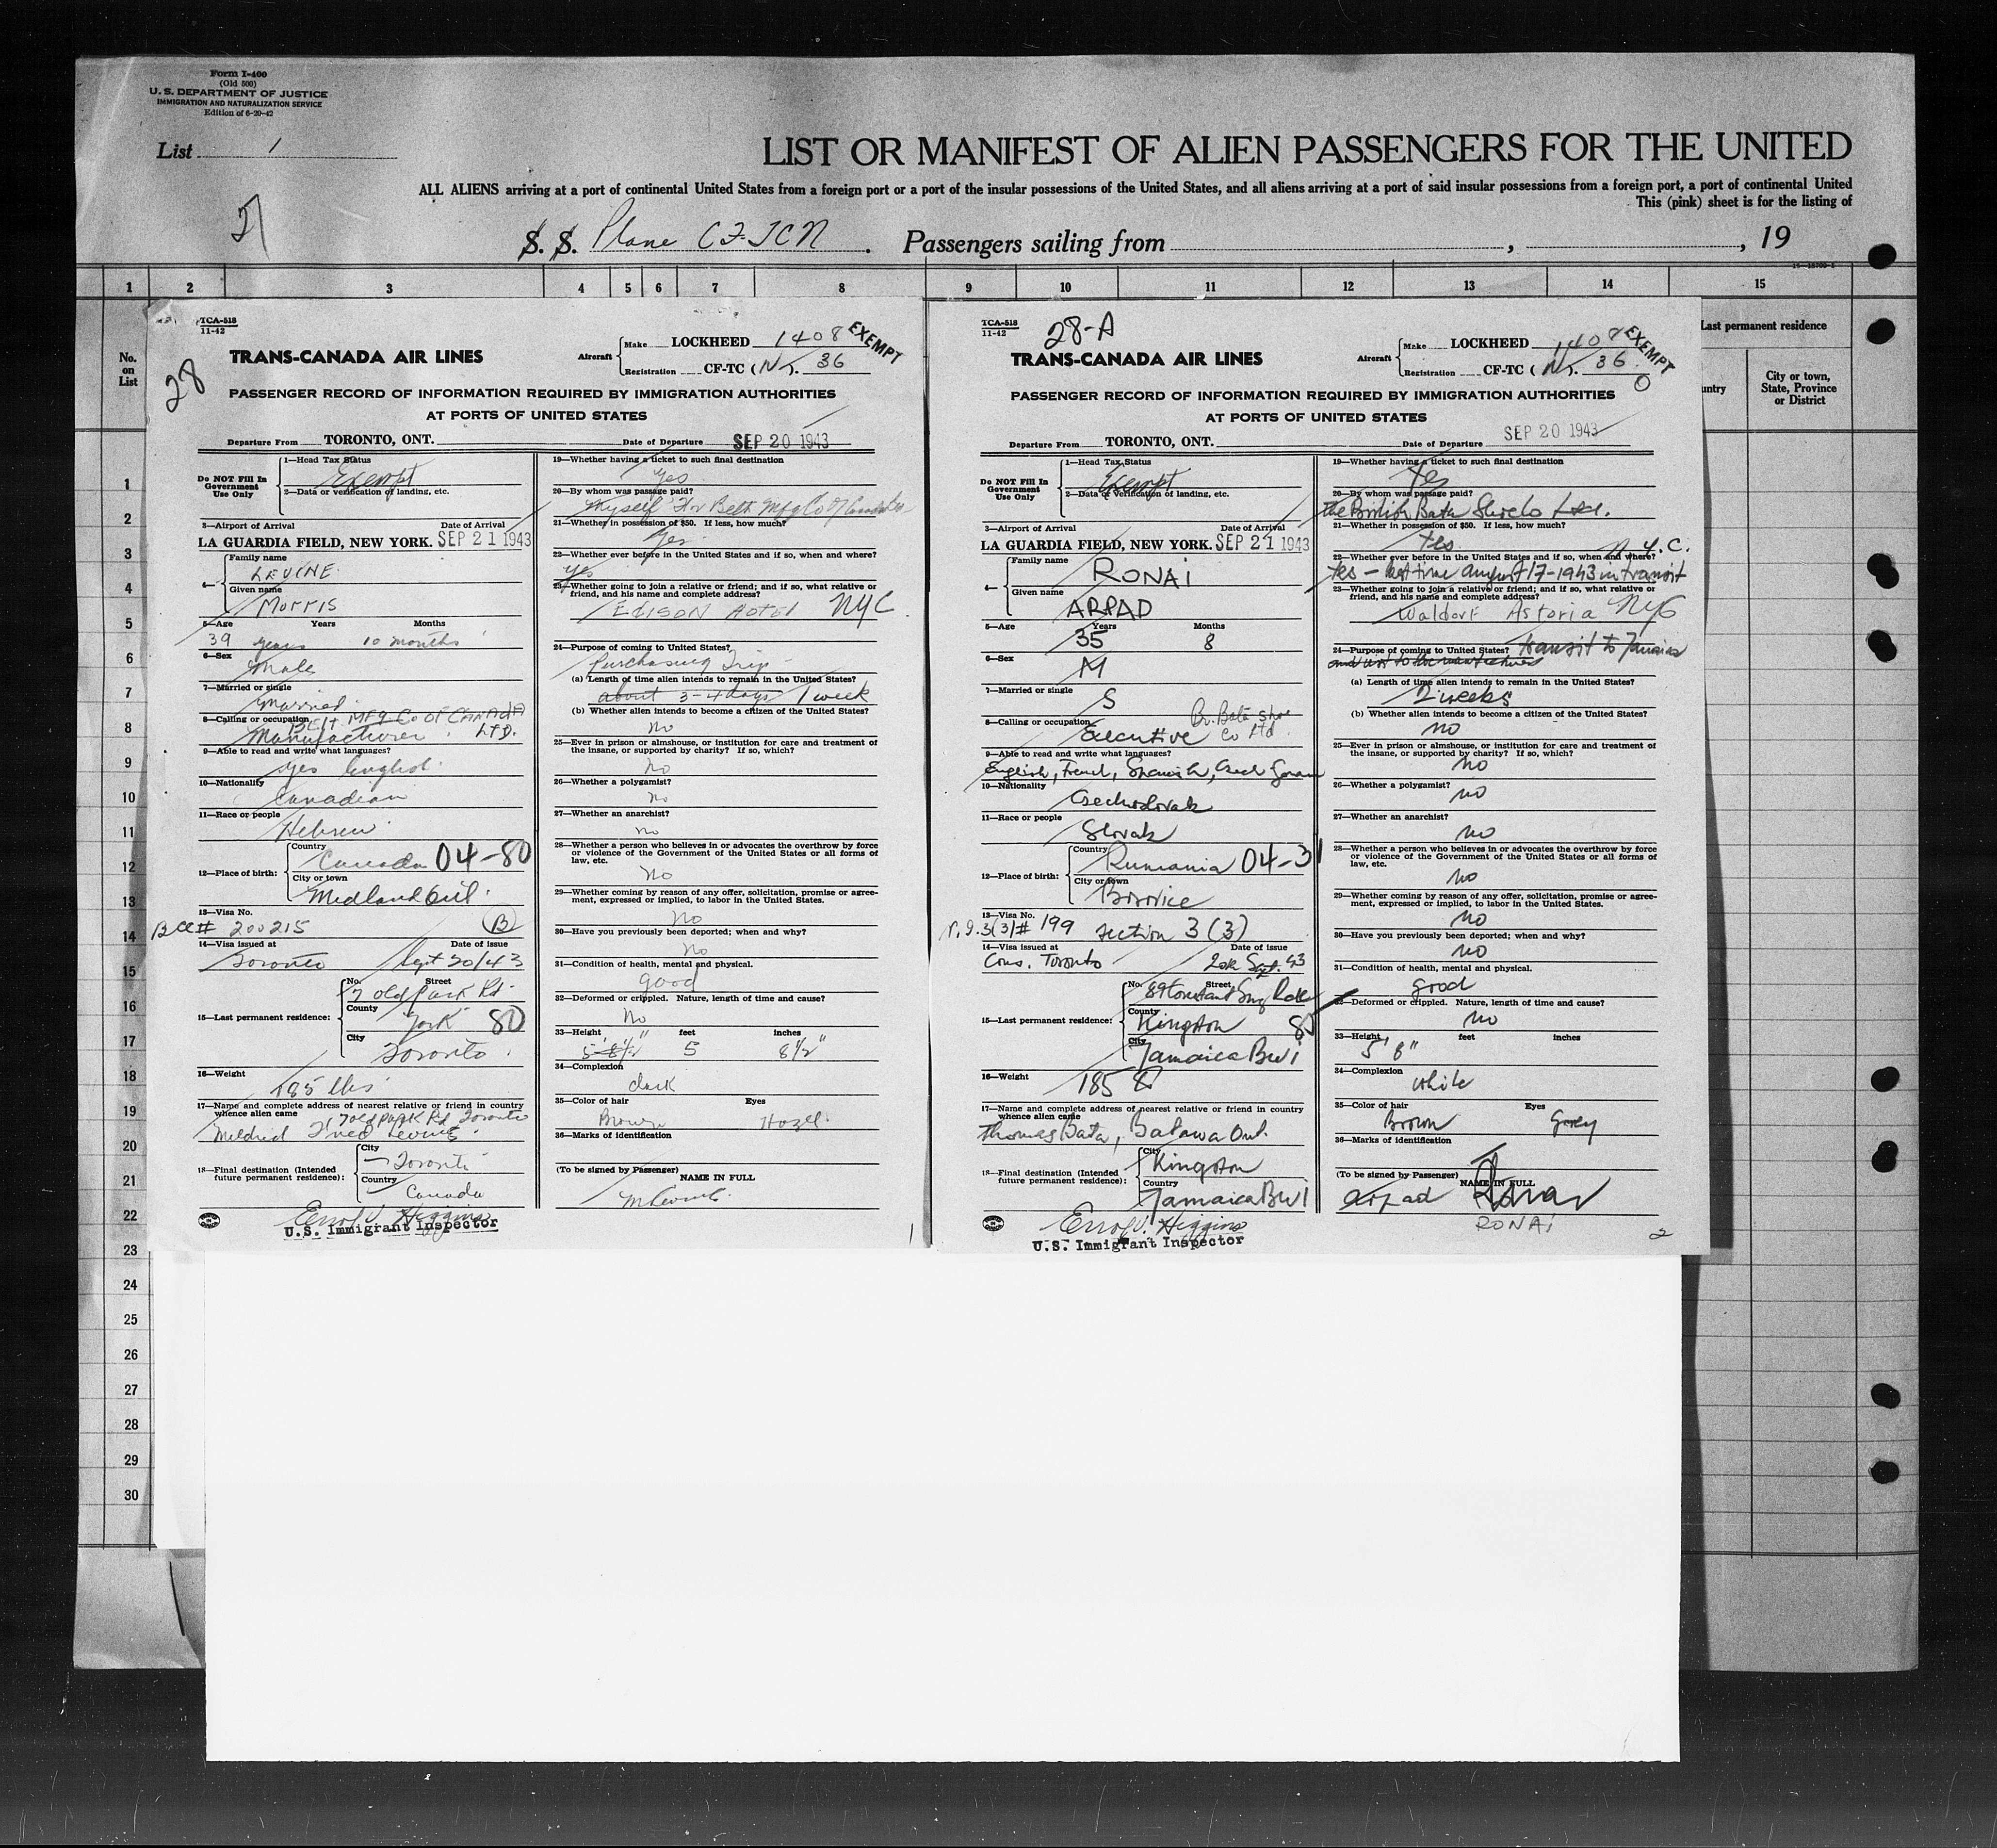 Form I-400
(Old 500)
U. S. DEPARTMENT OF JUSTICE
IMMIGRATION AND NATURALIZATION SERVICE
Edition of 6-20-42
List 1
LIST OR MANIFEST OF ALIEN PASSENGERS FOR THE UNITED
ALL ALIENS arriving at a port of continental United States from a foreign port or a port of the insular possessions of the United States, and all aliens arriving at a port of said insular possessions from a foreign port, a port of continental United
This (pink) sheet is for the listing of
S. S. Plane CF-TCN . Passengers sailing from , , 19
1 2 3 4 5 6 7 8 9 10 11 12 13 14 15
No. on List
Last permanent residence
untry
City or town, State, Province or District
1
2
3
4
5
6
7
8
9
10
11
12
13
14
15
16
17
18
19
20
21
22
23
24
25
26
27
28
29
30
TCA-518
11-42
28
TRANS-CANADA AIR LINES
Aircraft Make LOCKHEED 1408 EXEMPT
Registration CF-TC (N). 36
PASSENGER RECORD OF INFORMATION REQUIRED BY IMMIGRATION AUTHORITIES
AT PORTS OF UNITED STATES
Departure From TORONTO, ONT. Date of Departure SEP 20 1943
Do NOT Fill In Government Use Only
1—Head Tax Status
Exempt
2—Data or verification of landing, etc.
3—Airport of Arrival Date of Arrival
LA GUARDIA FIELD, NEW YORK. SEP 21 1943
4—Family name
LEVINE
Given name
Morris
5—Age Years Months
39 years 10 months
6—Sex
Male
7—Married or single
Married
8—Calling or occupation BELT MFG CO OF CANADA LTD.
Manufacturer
9—Able to read and write what languages?
yes English
10—Nationality
Canadian
11—Race or people
Hebrew
12—Place of birth: Country
Canada 04-80
City or town
Midland Ont.
13—Visa No.
BCC# 200215 (B)
14—Visa issued at Date of issue
Toronto Sept 20/43
15—Last permanent residence: No. Street
7 Old Park Rd.
County
York 80
City
Toronto
16—Weight
185 lbs
17—Name and complete address of nearest relative or friend in country whence alien came
7 Old Park Rd Toronto
Mildred Levine
18—Final destination (Intended future permanent residence): City
Toronto
Country
Canada
Errol V. Higgins
U.S. Immigrant Inspector
19—Whether having a ticket to such final destination
Yes
20—By whom was passage paid?
Myself for Belt Mfg Co of Canada
21—Whether in possession of $50. If less, how much?
Yes
22—Whether ever before in the United States and if so, when and where?
Yes
23—Whether going to join a relative or friend; and if so, what relative or friend, and his name and complete address?
EDISON HOTEL NYC
24—Purpose of coming to United States?
Purchasing Trip
(a) Length of time alien intends to remain in the United States?
about 3-4 days 1 week
(b) Whether alien intends to become a citizen of the United States?
No
25—Ever in prison or almshouse, or institution for care and treatment of the insane, or supported by charity? If so, which?
No
26—Whether a polygamist?
No
27—Whether an anarchist?
no
28—Whether a person who believes in or advocates the overthrow by force or violence of the Government of the United States or all forms of law, etc.
No
29—Whether coming by reason of any offer, solicitation, promise or agreement, expressed or implied, to labor in the United States.
No
30—Have you previously been deported; when and why?
No
31—Condition of health, mental and physical.
good
32—Deformed or crippled. Nature, length of time and cause?
No
33—Height feet inches
5' 8½" 5 8½"
34—Complexion
dark
35—Color of hair Eyes
Brown Hazel
36—Marks of identification
(To be signed by Passenger) NAME IN FULL
M Levine
1
TCA-518
11-42
28-A
TRANS-CANADA AIR LINES
Aircraft Make LOCKHEED 1408 EXEMPT
Registration CF-TC (N). 36
PASSENGER RECORD OF INFORMATION REQUIRED BY IMMIGRATION AUTHORITIES
AT PORTS OF UNITED STATES
Departure From TORONTO, ONT. Date of Departure SEP 20 1943
Do NOT Fill In Government Use Only
1—Head Tax Status
Exempt
2—Data or verification of landing, etc.
3—Airport of Arrival Date of Arrival
LA GUARDIA FIELD, NEW YORK. SEP 21 1943
4—Family name
RONAI
Given name
ARPAD
5—Age Years Months
35 8
6—Sex
M
7—Married or single
S
8—Calling or occupation Br. Bata Shoe Co Ltd
Executive
9—Able to read and write what languages?
English, French, Spanish, Czech German
10—Nationality
Czechoslovak
11—Race or people
Slovak
12—Place of birth: Country
Rumania 04-31
City or town
13—Visa No.
199 section 3 (3)
14—Visa issued at Date of issue
Cons. Toronto 20th Sept. 43
15—Last permanent residence: No. Street
89
County
Kingston
City
Jamaica BWI
16—Weight
185
17—Name and complete address of nearest relative or friend in country whence alien came
Thomas Bata, Batawa Ont.
18—Final destination (Intended future permanent residence): City
Kingston
Country
Jamaica BWI
Errol V. Higgins
U.S. Immigrant Inspector
19—Whether having a ticket to such final destination
Yes
20—By whom was passage paid?
the British Bata Shoe Co Ltd.
21—Whether in possession of $50. If less, how much?
Yes
22—Whether ever before in the United States and if so, when and where? N.Y.C.
Yes - last time August 17-1943 in transit
23—Whether going to join a relative or friend; and if so, what relative or friend, and his name and complete address?
Waldorf Astoria NYC
24—Purpose of coming to United States? transit to Jamaica
(a) Length of time alien intends to remain in the United States?
2 weeks
(b) Whether alien intends to become a citizen of the United States?
no
25—Ever in prison or almshouse, or institution for care and treatment of the insane, or supported by charity? If so, which?
no
26—Whether a polygamist?
no
27—Whether an anarchist?
no
28—Whether a person who believes in or advocates the overthrow by force or violence of the Government of the United States or all forms of law, etc.
no
29—Whether coming by reason of any offer, solicitation, promise or agreement, expressed or implied, to labor in the United States.
no
30—Have you previously been deported; when and why?
no
31—Condition of health, mental and physical.
good
32—Deformed or crippled. Nature, length of time and cause?
no
33—Height feet inches
5' 8"
34—Complexion
white
35—Color of hair Eyes
Brown Grey
36—Marks of identification
(To be signed by Passenger) NAME IN FULL
Arpad Ronai
RONAI
2